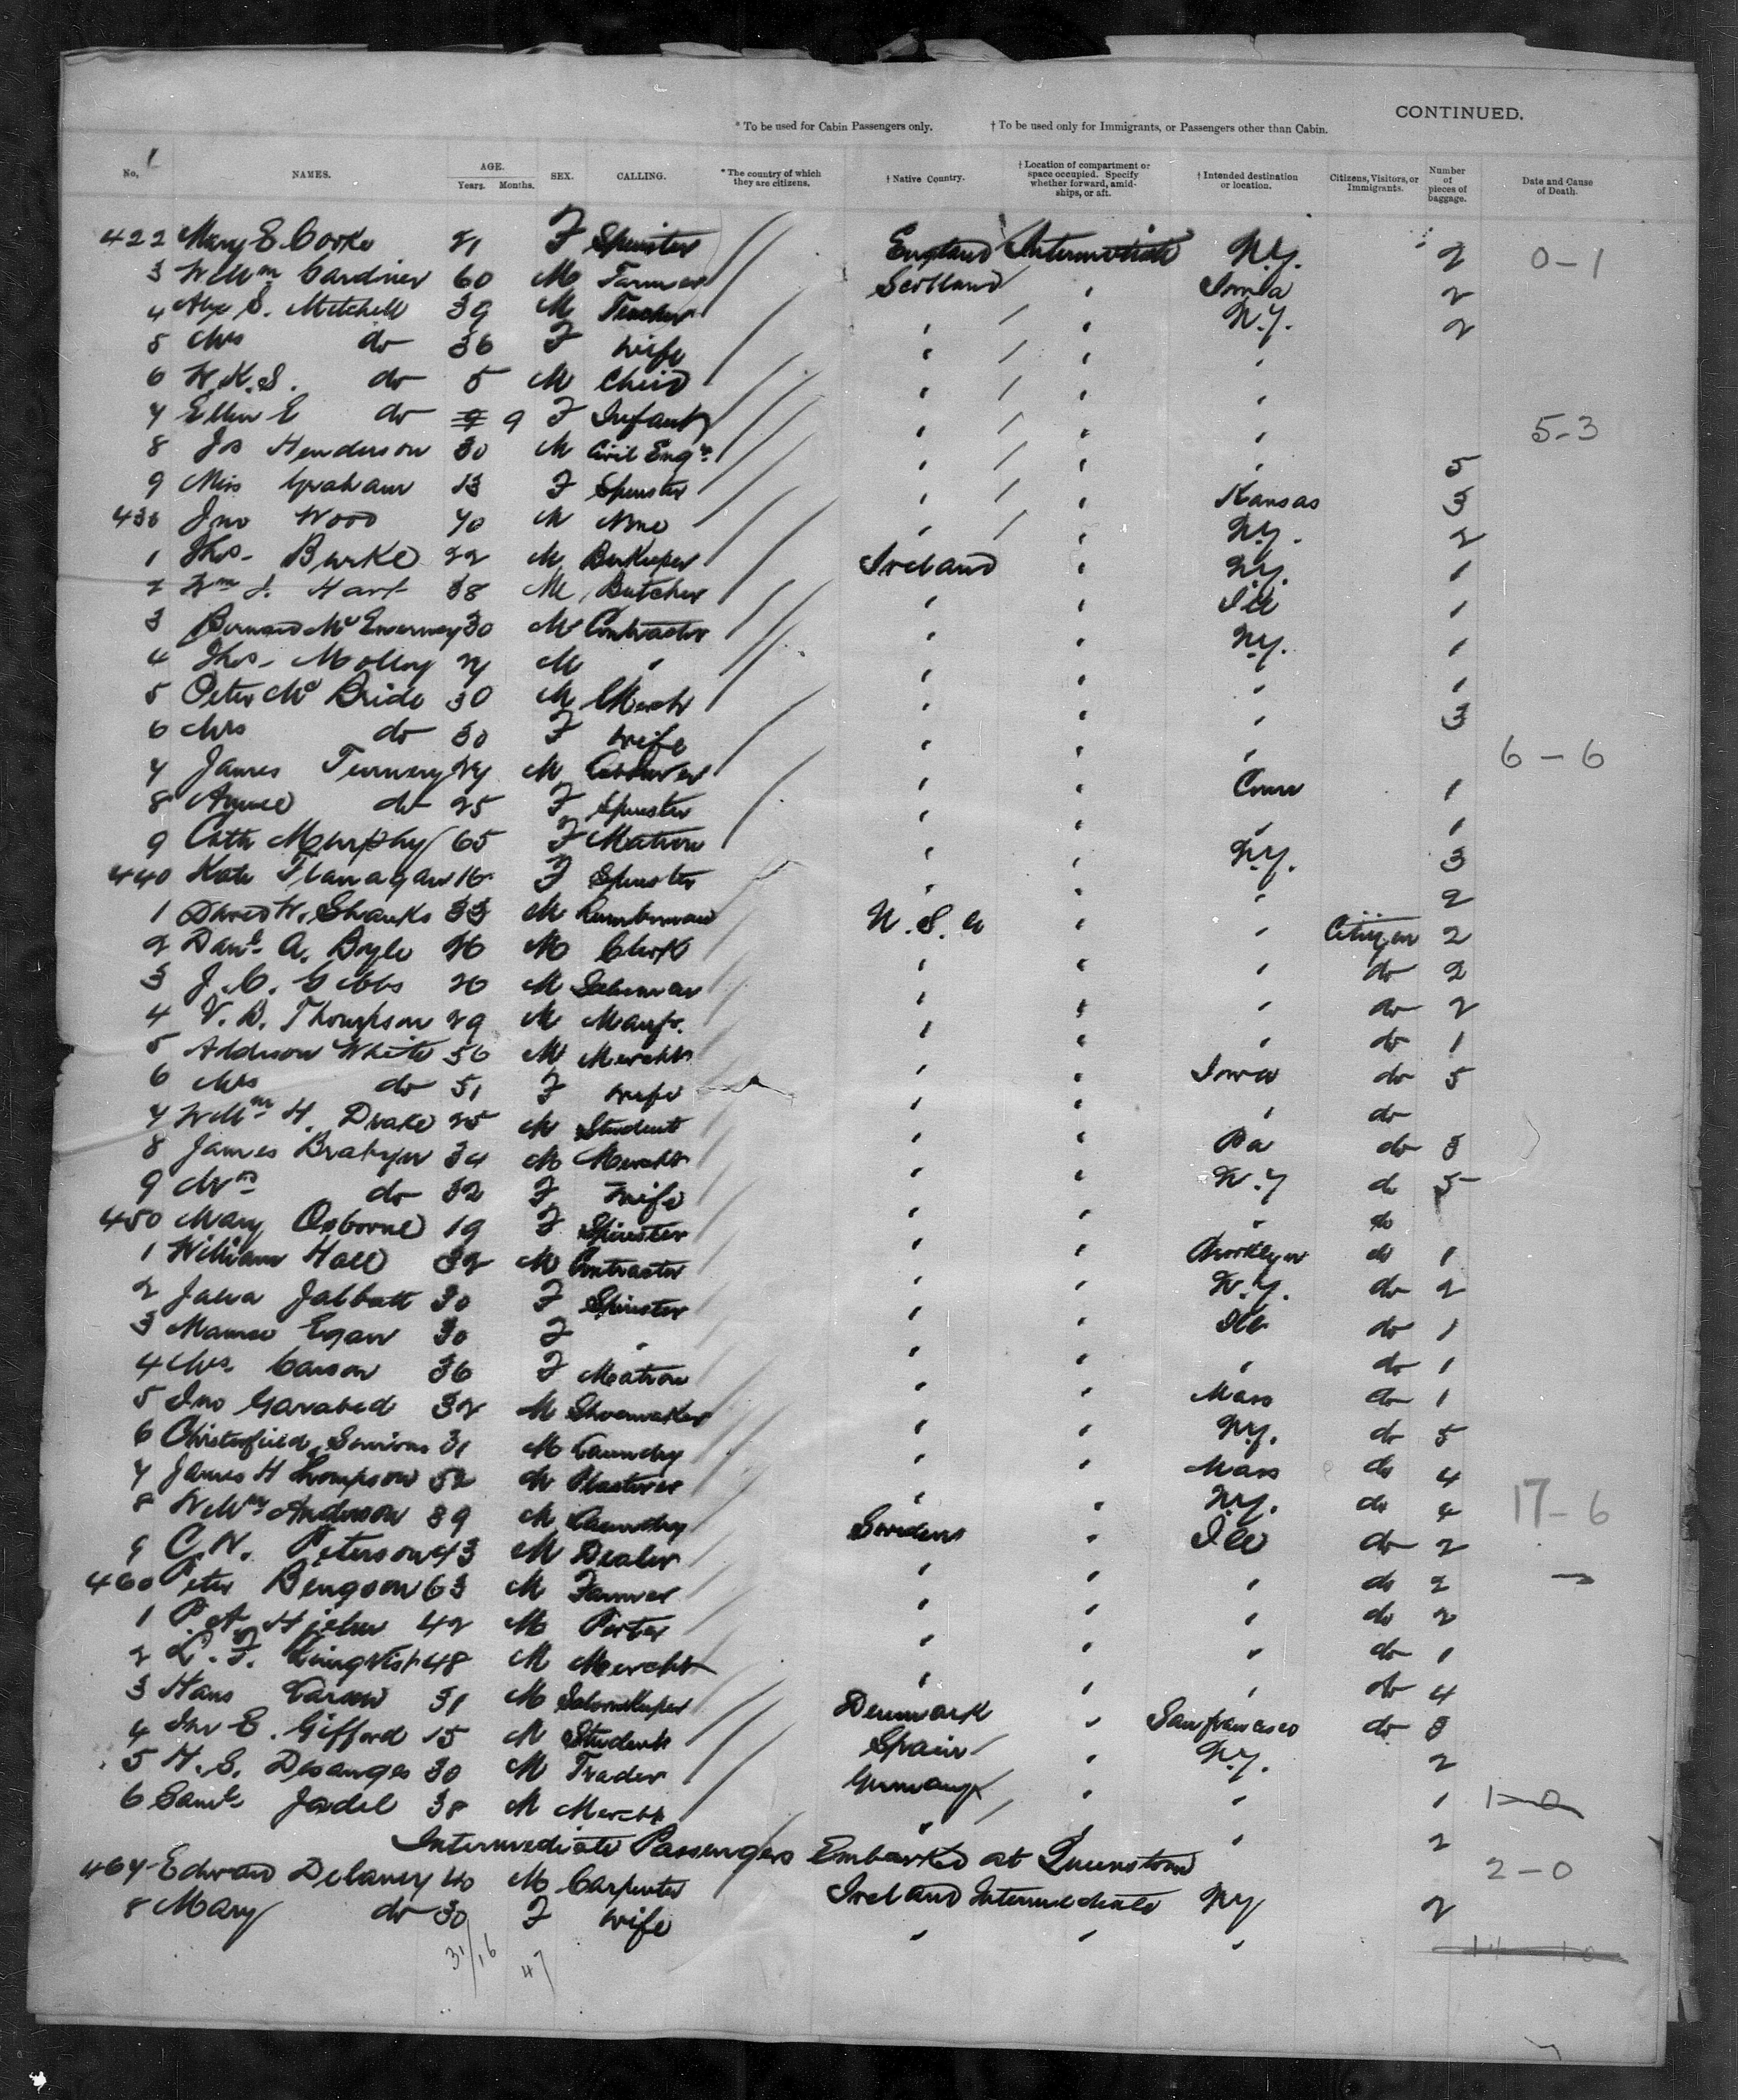 CONTINUED.
* To be used for Cabin Passengers only. † To be used only for Immigrants, or Passengers other than Cabin.
No. NAMES. AGE. Years. Months. SEX. CALLING. * The country of which they are citizens. † Native Country. † Location of compartment or space occupied. Specify whether forward, amidships, or aft. † Intended destination or location. Citizens, Visitors, or Immigrants. Number of pieces of baggage. Date and Cause of Death.
422 Mary E. Cooke 21 F Spinster England Intermediate N.Y. 2 0-1
3 Willm Gardiner 60 M Farmer Scotland " Iowa 2
4 Alex S. Mitchell 39 M Teacher " " N.Y. 2
5 Mrs do 36 F wife " " "
6 W.K.S. do 5 M Child " " "
7 Ellen E do 9 F Infant " " " 5-3
8 Jos Henderson 30 M Civil Engr " " " 5
9 Miss Graham 13 F Spinster " " Kansas 3
430 Jno Wood 70 M None " " N.Y. 2
1 Thos. Burke 22 M Barkeeper Ireland " N.Y. 1
2 Wm J. Hart 38 M Butcher " " Ill 1
3 Bernard McEnerney 30 M Contractor " " N.Y. 1
4 Thos. Molloy 27 M " " " " 1
5 Peter McBride 30 M Merch " " " 3
6 Mrs do 30 F wife " " " 6-6
7 James 27 M Labourer " " Conn 1
8 do 25 F Spinster " " " 1
9 Cath Murphy 65 F Matron " " N.Y. 3
440 Kate Flanagan 16 F Spinster " " " 2
1 H. Shanks 33 M Lumberman U.S.A " " Citizen 2
2 Danl A. Boyle 26 M Clerk " " " do 2
3 J.C. Gibbs 26 M Salesman " " " do 2
4 V.D. Thompson 29 M Manfr. " " " do 1
5 Addison White 56 M Mercht " " Iowa do 5
6 Mrs do 51 F wife " " " do
7 Willm H. Drake 25 M Student " " Pa do 3
8 James Brabyn 34 M Mercht " " N.Y do 5
9 Mrs do 32 F wife " " " do
450 Mary Osborne 19 F Spinster " " Brooklyn do 1
1 William Hall 32 M Contractor " " N.Y. do 2
2 Jabbatt 30 F Spinster " " Ill do 1
3 Egan 30 F " " " " do 1
4 Mrs. Carson 36 F Matron " " Mass do 1
5 Jno Garabed 32 M Shoemaker " " N.Y. do 5
6 Chesterfield 31 M Laundry " " Mass do 4
7 James H Thompson 52 M Plasterer " " N.Y. do 4 17-6
8 Willm Anderson 39 M Laundry Sweden " Ill do 2
9 C.N. Peterson 43 M Dealer " " " do 2
460 Peter Bengson 63 M Farmer " " " do 2
1 P.A. Hjelm 42 M Porter " " " do 1
2 L.F. Lingvist 48 M Mercht " " " do 4
3 Hans Larsen 31 M Saloonkeeper Denmark " San francisco do 3
4 Jno E. Gifford 15 M Student Spain " N.Y. 2
5 H.S. Desanges 30 M Trader Germany " " 1 1-0
6 Saml Jadel 38 M Mercht " " " 2
Intermediate Passengers Embarked at Queenstown 2-0
467 Edward Delaney 40 M Carpenter Ireland Intermediate NY 2
8 Mary do 30 F wife " " "
31/16 47